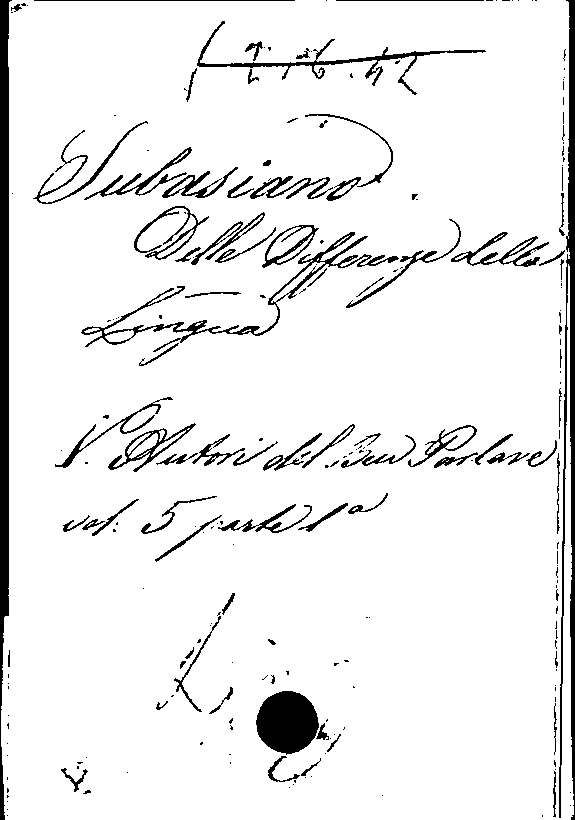 Subasiano.
Delle Differenze della
Lingua
V. Autori del Ben Parlare
vol. 5 parte 1a